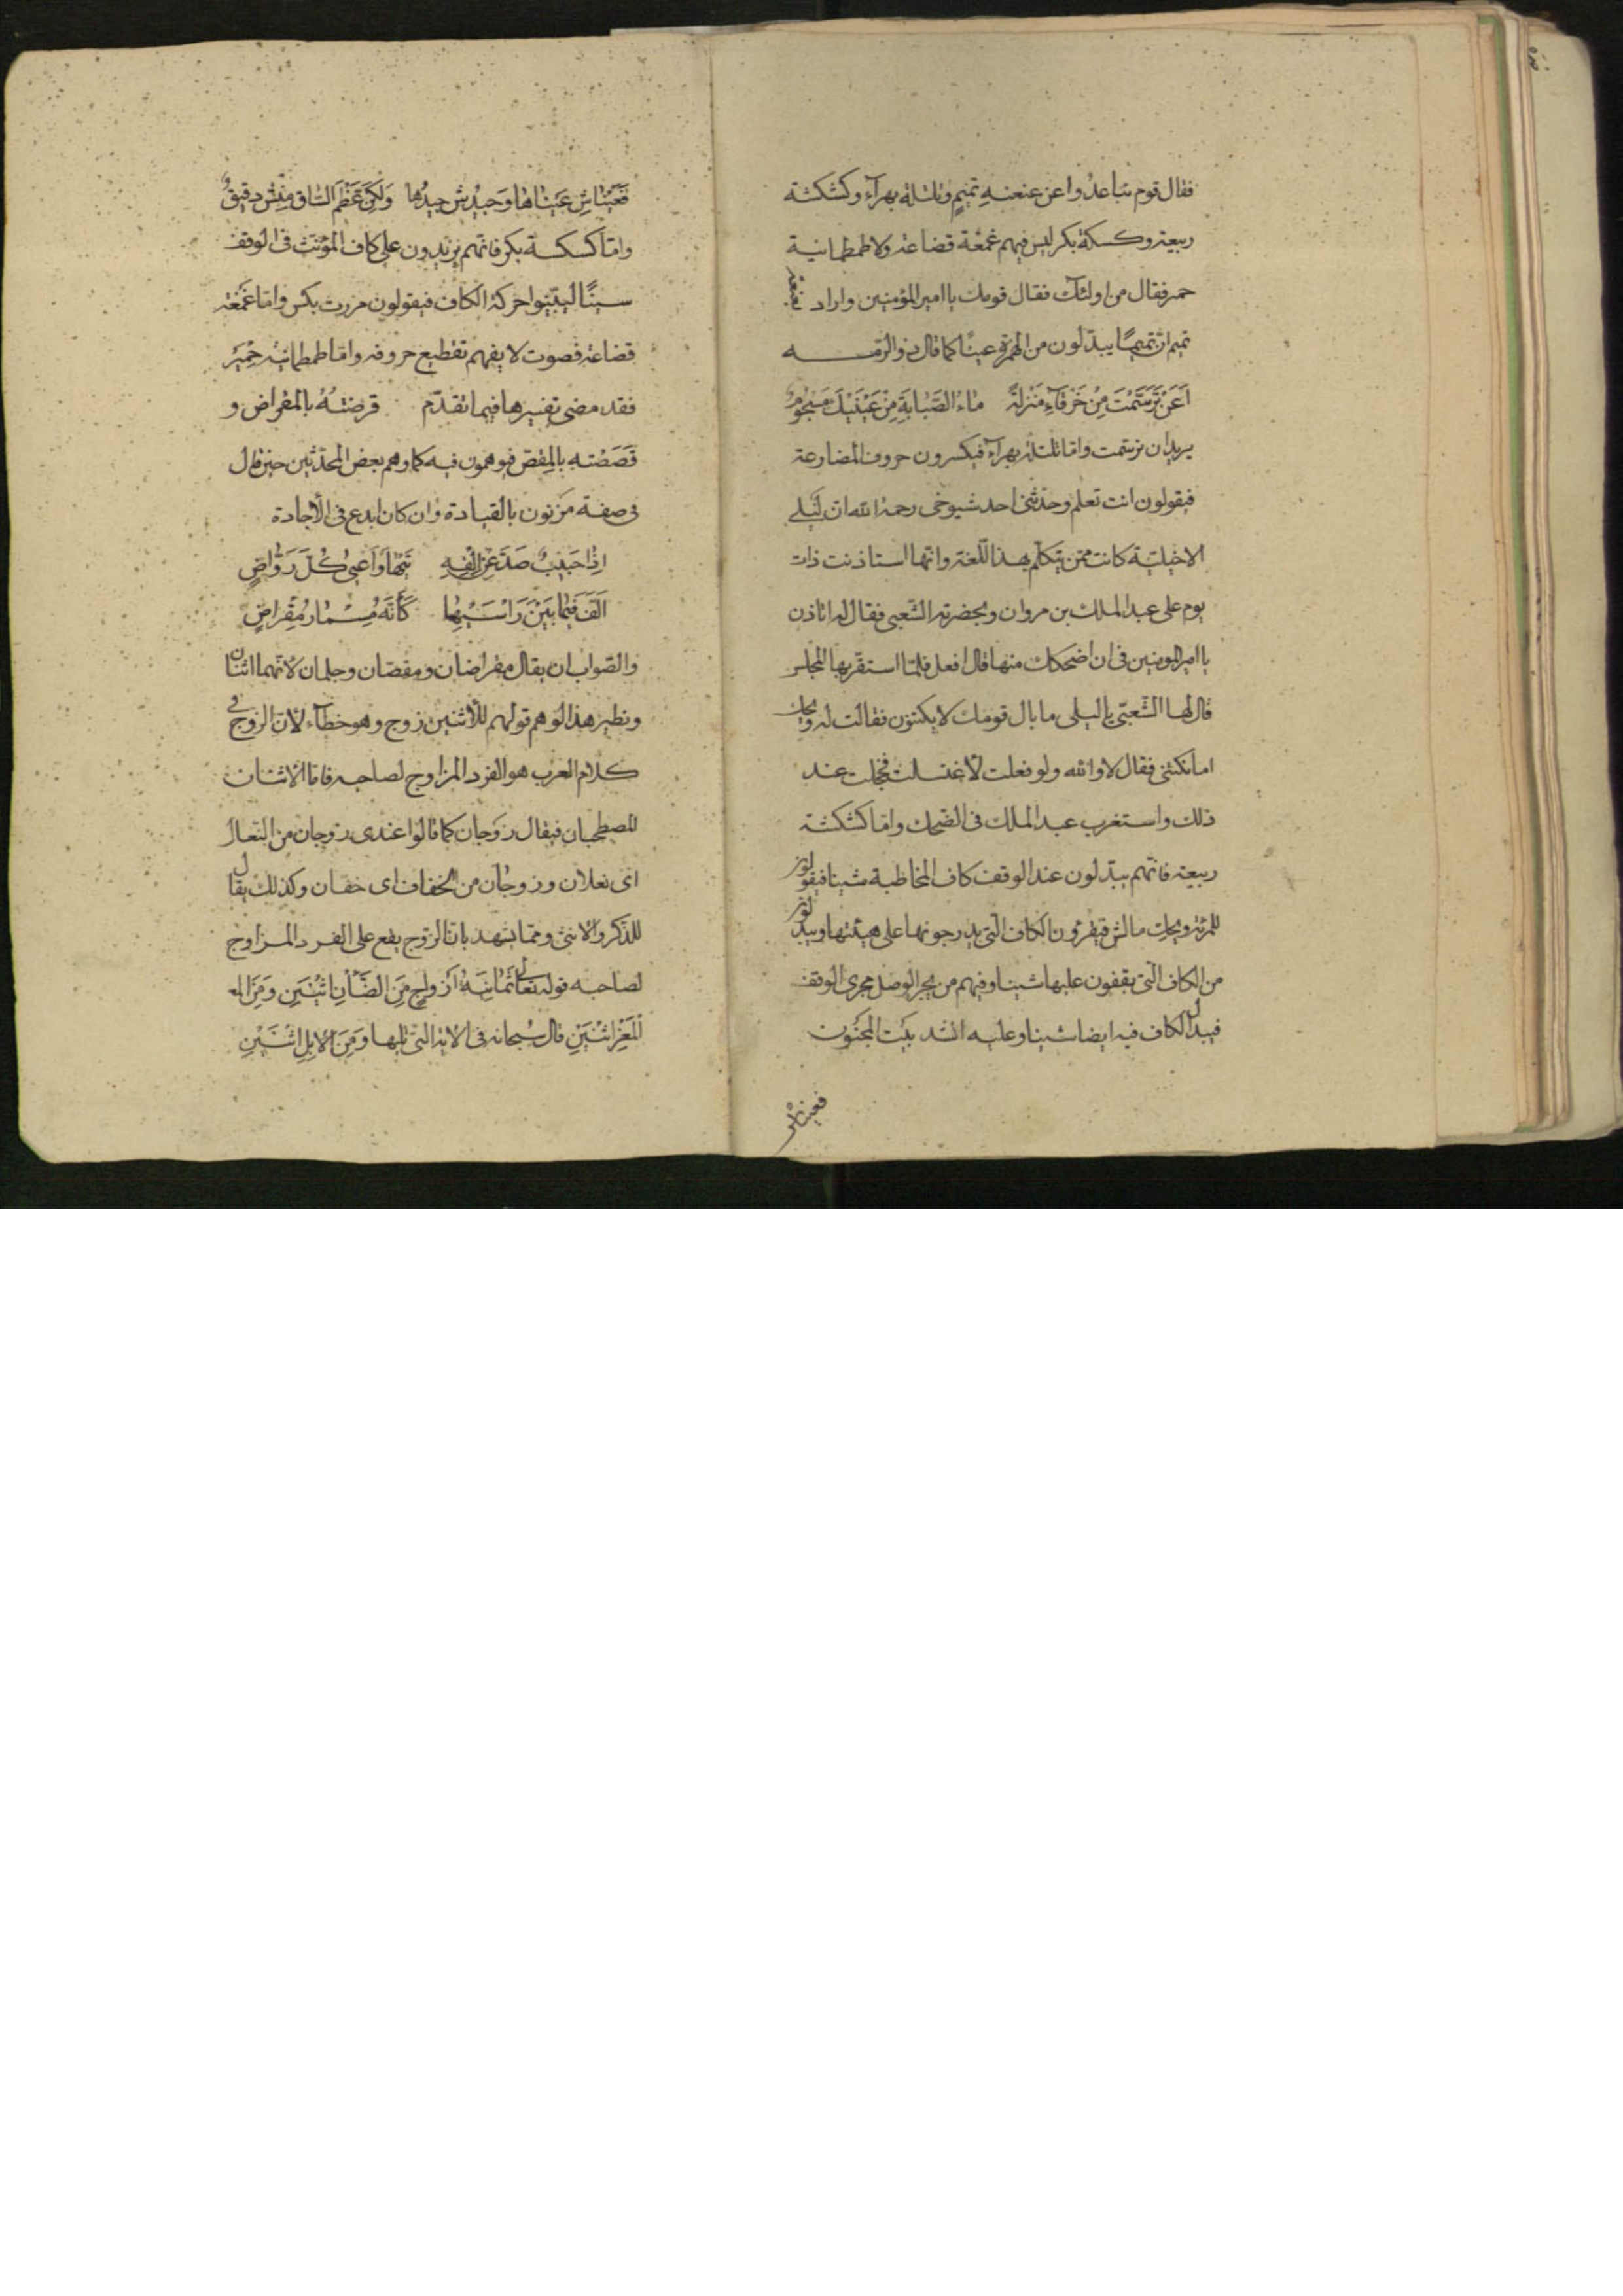 فقال قوم تباعدوا عن عنعنهِ تميمٍ وتلتلة بهرآء وكشكشة
ربيعة وكسكة بكر ليس فيهم غمغة قضاعة ولا طمطمانية
حمر فقال من اولئك فقال قومك يا امير المؤمنين واراد بعنعنة
تميم ان تميمًا يبدّلون من الهمزة عينًا كما قال ذو الرّمـه
اَعَنْ تَرَسَّمْتَ مِنْ خَرْقآءِ مَنْزِلَةً مَاءُ الصَّبَابَةِ مِنْ عَيْنَيْكَ مَسْجُومُ
يريد ان ترسّمت وامّا تلتلة بهرآء فيكسرون حروف المضارعة
فيقولون انت تعلم وحدّثنى احد شيوخى رحمه الله ان لَيْلى
الاخيليّة كانت ممّن يتكلّم بهذا اللّغة وانها استاذنت ذات
يوم على عبد الملك بن مروان وبحضرته الشّعبى فقال له اتاذن
يا امير المومنين فى ان اضحكك منها قال افعل فلمّا استقر بها المجلس
قال لها الشّعبىّ يا ليلى ما بال قومك لا يكتنون فقالت له ويحك
اما نكتنى فقال لا والله ولو فعلت لاغتسلت فخجلت عند
ذلك واستغرب عبد الملك فى الضحك وامّا كشكشة
ربيعة فانّهم يبدّلون عند الوقف كاف المخاطبة شينا فيقولون
للمرئة ويحك مالش فيقرؤن الكاف الّتى يدرجونها على هيئتها ويبدلون
من الكاف الّتى يقفون عليها شينا وفيهم من يجر الوصل مجرى الوقف
فيبدل الكاف فيه ايضا شينا وعليه انشد بيت المجنُون
فعيناش
فَعَيْنَاشِ عَيْنَاهَا وَجِيْدُشِ جِيْدُهَا وَلَكِنَّ عَظْمَ السَّاقِ مِنْشِ دَقِيْقُ
وامّا كسكسة بكر فانّهم يزيدون على كاف المؤنّث فى الوقف
سينًا ليبيّنوا حركة الكاف فيقولون مررت بكس وامّا غمغة
قضاعة فصوت لا يفهم تقطيع حروفه وامّا طمطمانية حِمْيَر
فقد مضى تفسيرها فيما تقدّم قرضتُهُ بالمقراض و
قَصَصْته بالمِقصّ فيوهمون فيه كما وهم بعض المحدّثين حين قال
فى صفة مَزْنون بالقيادة وان كان ابدع فى الأجادة
اِذَا حَبِيْبٌ صَدَّ عَنْ اِلْفِهِ تَيْهًا وَاَعْيىٰ كُلَّ رَوَّاضٍ
اَلَّفَ فِيْمَا بَيْنَ رَاْسَيْهِمَا كَاَنَّهُ مِسْمَارُ مِقْرَاضٍ
والصّواب ان يقال مقراضان ومقصّان وجلمان لأنّهما اثنان
ونظير هذا الوهم قولهم للأثنين زوج وهو خطآء لأن الزوج فى
كلام العرب هو الفرد المزاوج لصاحبه فامّا الاثنان
المصطحبان فيقال زَوجان كما قالوا عندى زوجان من النّعال
اى نعلان وزوجان من الخفاف اى خفّان وكذلك يقال
للذّكر والانثى وممّا يشهد بانّ الزّوج يقع على الفرد المزاوج
لصاحبه قوله تعالى ثَمَانِيَةَ اَزْواجٍ مِنَ الضَّأْنِ اثْنَيْنِ وَمِنَ المع
الْمَعْزِ اثْنَيْنِ قال سُبحانه فى الآية الّتى تليها وَمِنَ الابِلِ اثْنَيْنِ